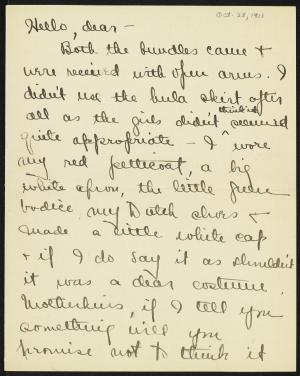 Oct. 28, 1911
Hello, dear —
Both the bundles came &
were received with open arms. I
didn't use the hula skirt after
all as the girls didn't think it seemed
quite appropriate — I wore
my red petticoat, a big
white apron, the little green
bodice, my Dutch shoes &
made a little white cap
& if I do say it as shouldn't
it was a dear costume.
Motherkins, if I tell you
something will you
promise not to think it